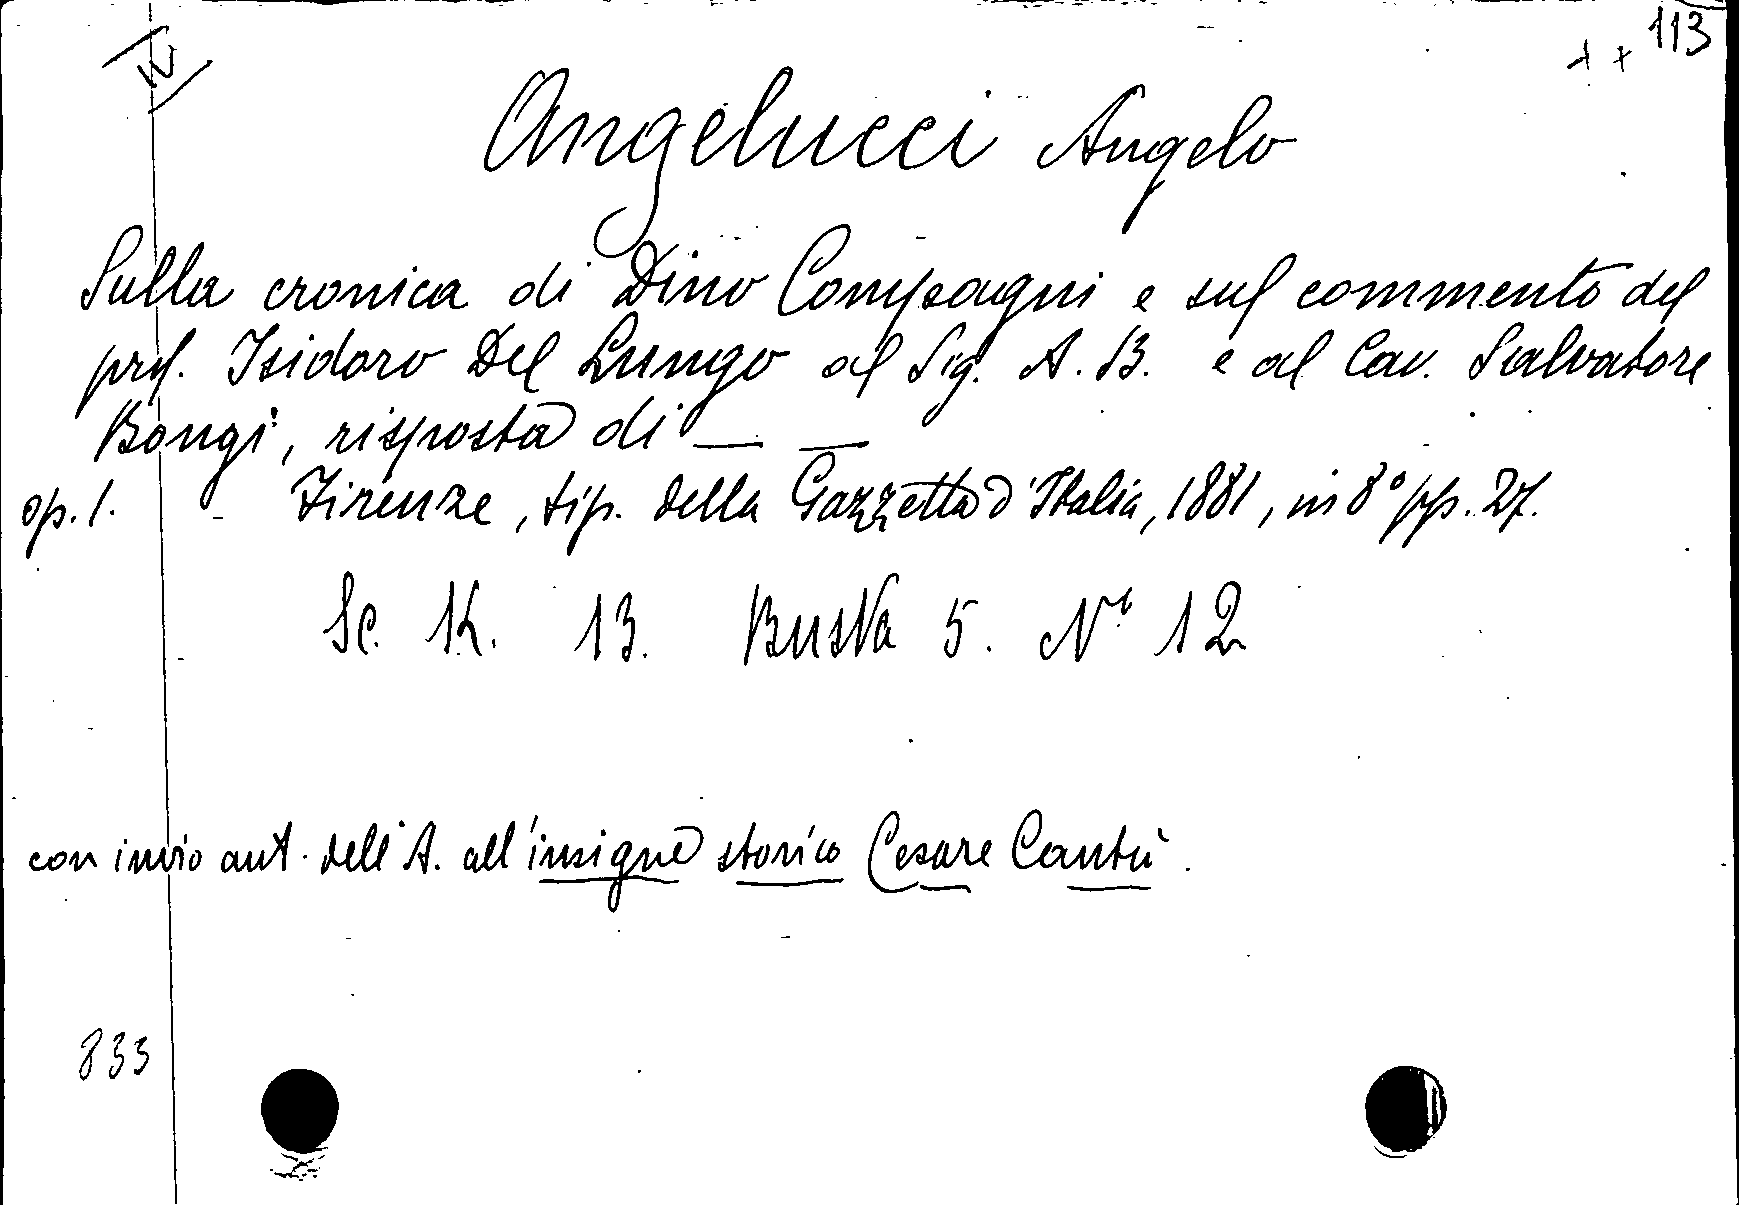 IV
113
Angelucci Angelo
Sulla cronica di Dino Compagni e sul commento del
prof. Isidoro Del Lungo al Sig. A. B. e al Cav. Salvatore
Bongi, risposta di — —
op. 1. Firenze, tip. della Gazzetta d'Italia, 1881, in 8° pp. 27.
Sc. K. 13. Busta 5. N° 12
con invio aut. dell'A. all'insigne storico Cesare Cantù.
833